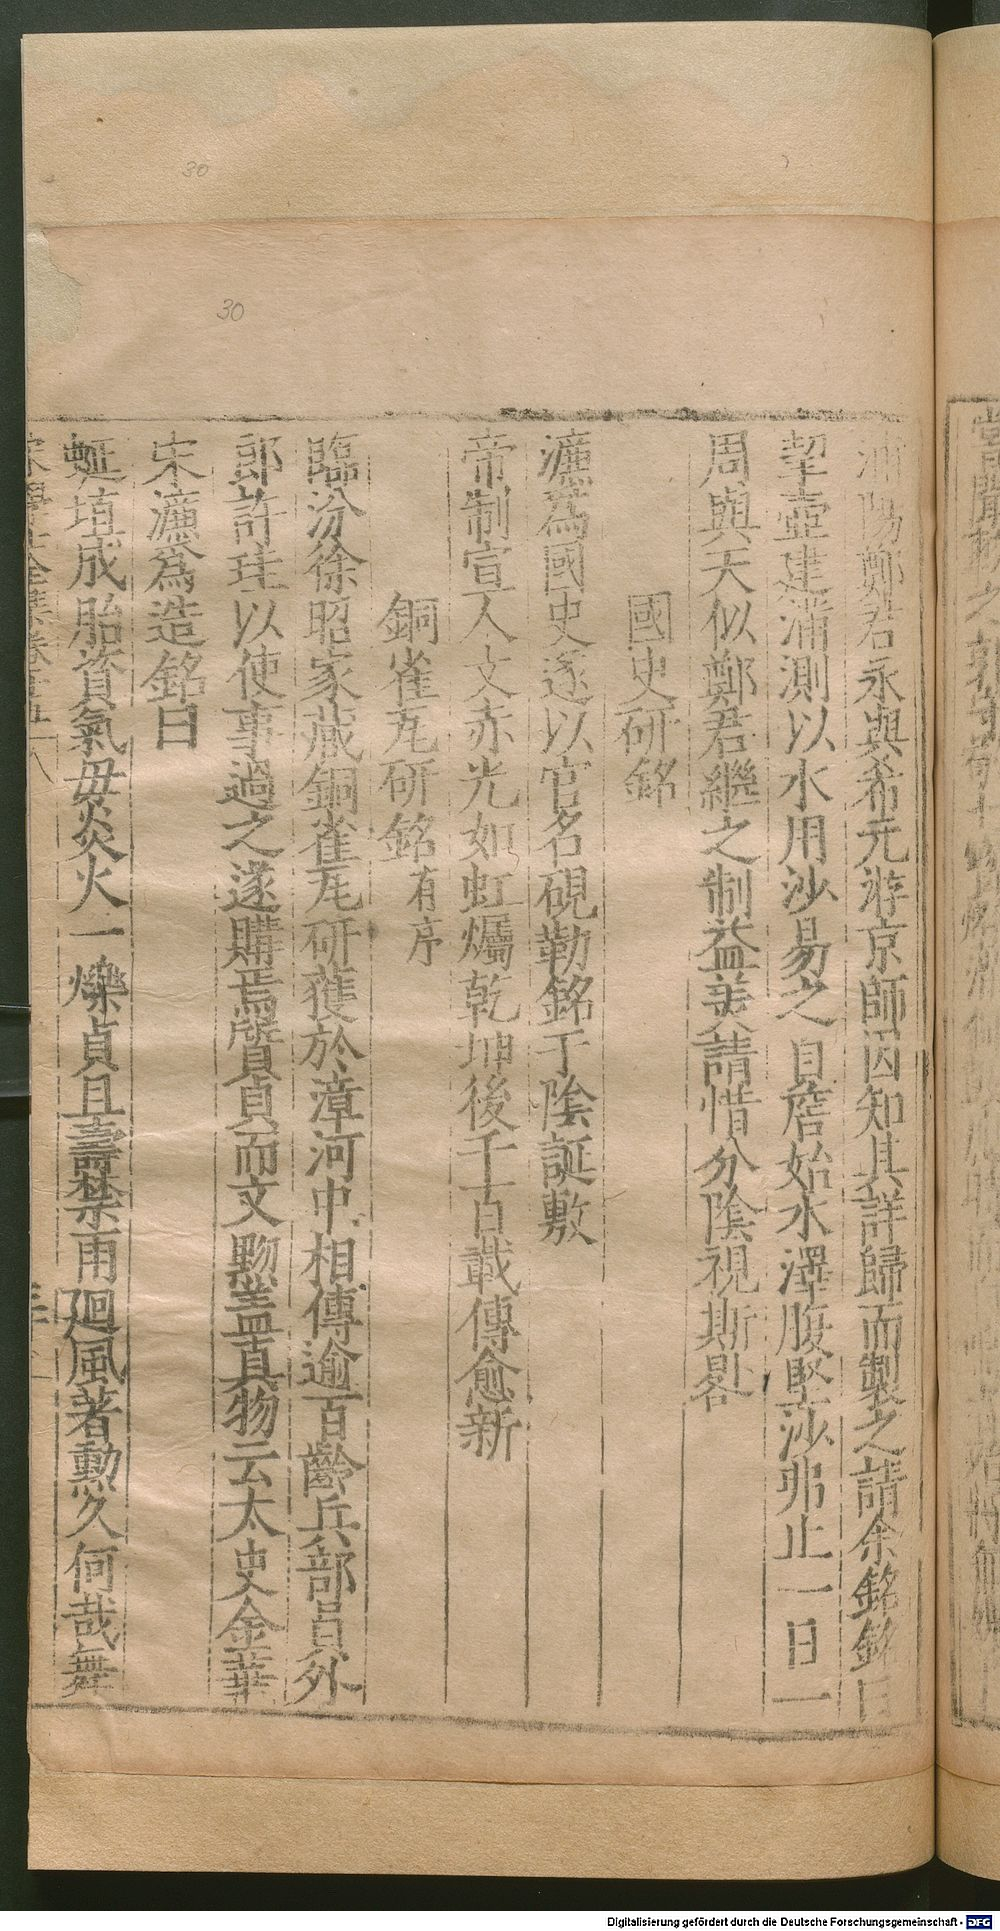 浦陽鄭君永與希元游京師因知其詳歸而製之請余銘銘曰
挈壺建漏測以水用沙易之自詹始水澤腹堅沙弗止一日一
周與天似鄭君繼之制益美請惜分陰視斯晷
國史研銘
濂爲國史遂以官名硯勒銘于陰誕敷
帝制宣人文赤光如虹燭乾坤後千百載傳愈新
銅雀瓦研銘有序
臨汾徐昭家藏銅雀瓦研獲於漳河中相傳逾百齡兵部員外
郎許珪以使事過之遂購焉質貞而文黝盖真物云太史金華
宋濂爲造銘曰
蜒埴成胎資氣毋炎火一爍貞且壽禁雨廻風著勳久何哉舞
宋學士全集卷
30
30
Digitalisierung gefördert durch die Deutsche Forschungsgemeinschaft - DFG